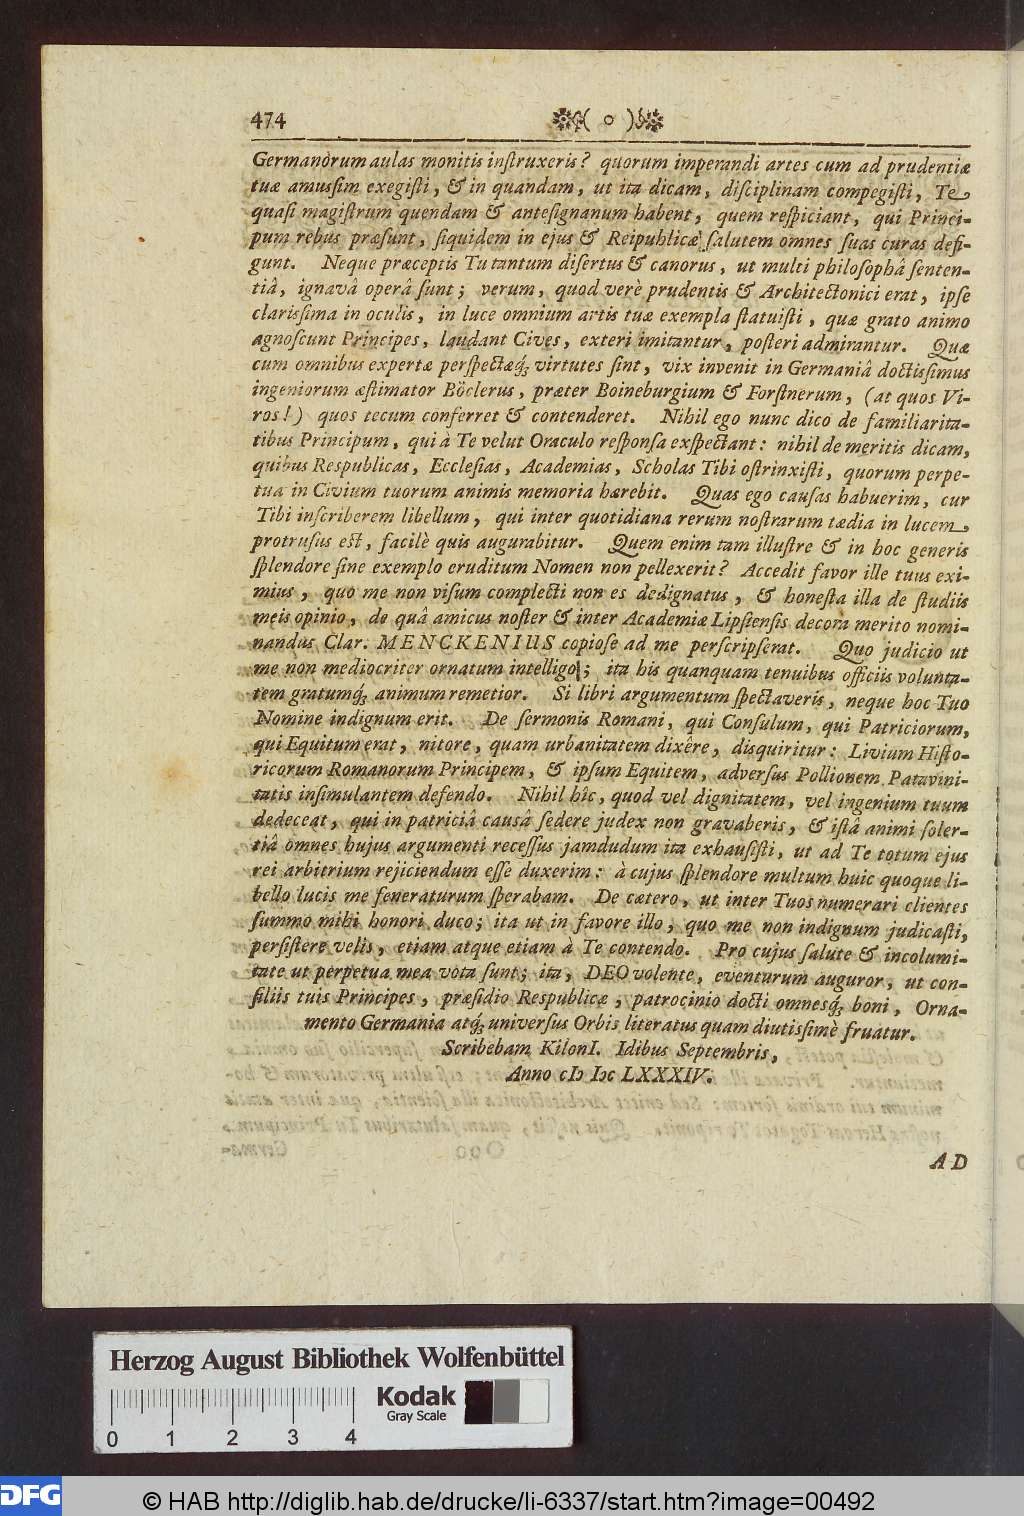 474 ( o )
Germanorum aulas monitis inſtruxeris? quorum imperandi artes cum ad prudentiæ
tuæ amuſſim exegiſti, & in quandam, ut ita dicam, diſciplinam compegiſti, Te
quaſi magiſtrum quendam & anteſignanum habent, quem reſpiciant, qui Princi-
pum rebus præſunt, ſiquidem in ejus & Reipublicæ ſalutem omnes ſuas curas defi-
gunt. Neque præceptis Tu tantum diſertus & canorus, ut multi philoſophâ ſenten-
tiâ, ignavâ operâ ſunt; verum, quod verè prudentis & Architectonici erat, ipſe
clariſſima in oculis, in luce omnium artis tuæ exempla ſtatuiſti, quæ grato animo
agnoſcunt Principes, laudant Cives, exteri imitantur, poſteri admirantur. Quæ
cum omnibus expertæ perſpectæq́; virtutes ſint, vix invenit in Germaniâ doctiſſimus
ingeniorum æſtimator Böclerus, præter Boineburgium & Forſtnerum, (at quos Vi-
ros!) quos tecum conferret & contenderet. Nihil ego nunc dico de familiarita-
tibus Principum, qui à Te velut Oraculo reſponſa exſpectant: nihil de meritis dicam,
quibus Respublicas, Eccleſias, Academias, Scholas Tibi oſtrinxiſti, quorum perpe-
tua in Civium tuorum animis memoria hærebit. Quas ego cauſas habuerim, cur
Tibi inſcriberem libellum, qui inter quotidiana rerum noſtrarum tædia in lucem
protruſus eſt, facilè quis augurabitur. Quem enim tam illuſtre & in hoc generis
ſplendore ſine exemplo eruditum Nomen non pellexerit? Accedit favor ille tuus exi-
mius, quo me non viſum complecti non es dedignatus, & honeſta illa de ſtudiis
meis opinio, de quâ amicus noſter & inter Academiæ Lipſienſis decora merito nomi-
nandus Clar. MENCKENIUS copioſe ad me perſcripſerat. Quo judicio ut
me non mediocriter ornatum intelligo; ita his quanquam tenuibus officiis volunta-
tem gratumq́; animum remetior. Si libri argumentum ſpectaveris, neque hoc Tuo
Nomine indignum erit. De ſermonis Romani, qui Conſulum, qui Patriciorum,
qui Equitum erat, nitore, quam urbanitatem dixêre, disquiritur: Livium Hiſto-
ricorum Romanorum Principem, & ipſum Equitem, adverſus Pollionem Patavini-
tatis inſimulantem defendo. Nihil hîc, quod vel dignitatem, vel ingenium tuum
dedeceat, qui in patriciâ causâ ſedere judex non gravaberis, & iſtâ animi ſoler-
tiâ omnes hujus argumenti receſſus jamdudum ita exhauſiſti, ut ad Te totum ejus
rei arbitrium rejiciendum eſſe duxerim: à cujus ſplendore multum huic quoque li-
bello lucis me feneraturum ſperabam. De cætero, ut inter Tuos numerari clientes
ſummo mihi honori duco; ita ut in favore illo, quo me non indignum judicaſti,
perſiſtere velis, etiam atque etiam à Te contendo. Pro cujus ſalute & incolumi-
tate ut perpetua mea vota ſunt; ita, DEO volente, eventurum auguror, ut con-
ſiliis tuis Principes, præſidio Respublicæ, patrocinio docti omnesq́; boni, Orna-
mento Germania atq́; univerſus Orbis literatus quam diutiſſimè fruatur.
Scribebam KilonI. Idibus Septembris,
Anno cIↃ IↃc LXXXIV.
AD
Herzog August Bibliothek Wolfenbüttel
Kodak
Gray Scale
0 1 2 3 4
DFG © HAB http://diglib.hab.de/drucke/li-6337/start.htm?image=00492